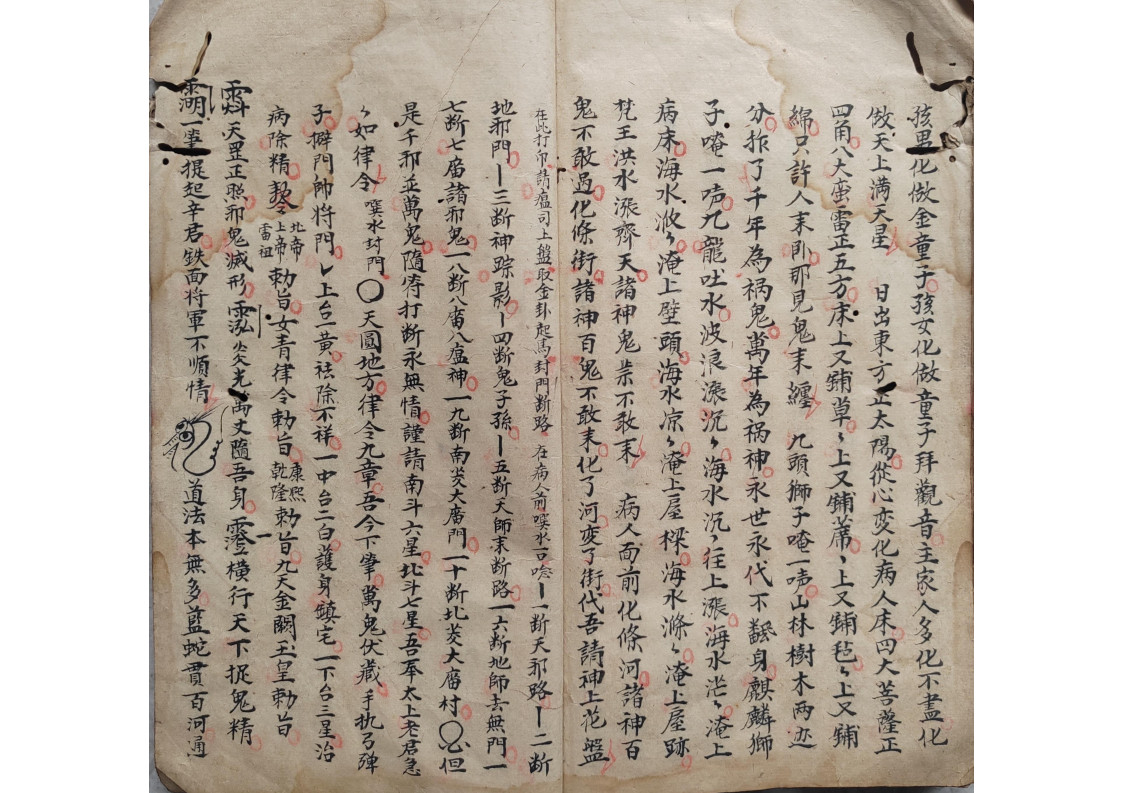 孩男化做金童子孩女化做童子拜觀音主家人多化不盡化
做天上満天星 日出東方正太陽從心变化病人床四大菩薩正
四角八大蛮雷正五方床上又鋪草〻上又鋪蓆〻上又鋪毡〻上又鋪
綿只許人末卧那見鬼末纏 九頭獅子唵一声山林樹木两边
分拆了千年為祸鬼萬年為祸神永世永代不翻身麒麟獅
子唵一声九龍吐水波浪漲沉〻海水沉〻往上漲海水茫〻淹上
病床海水淤〻淹上壁頭海水凉〻淹上屋樑海水滌〻淹上屋跡
梵王洪水漲齊天諸神鬼祟不敢末 病人面前化條河諸神百
鬼不敢過化條街諸神百鬼不敢末化了河变了街代吾請神上花盤
在此打卦請瘟司上盤取金卦起馬封門断路 在病人前噀水一口唸一断天邪路一二断
地邪門一三断神踪影一四断鬼子孫一五断天師末断路一六断地師去無門一
七断七庙諸邪鬼一八断八庙八瘟神一九断南炎大庙門一十断北炎大庙村〇㕣但
是千邪並萬鬼隨符打断永無情謹請南斗六星北斗七星吾奉太上老君急
〻如律令 噀水封門〇天圓地方律令九章吾今下筆萬鬼伏藏手执弓弹
子擗門帥将門 上台一黄祛除不祥一中台二白護身鎮宅一下台三星治
病除精 北帝上帝雷祖勅旨女青律令勅旨康熙乾隆勅旨九天金闕玉皇勅旨
天罡正照邪鬼滅形 炎光萬丈隨吾身 横行天下捉鬼精
一筆提起辛君鉄面将軍不順情 道法本無多藍蛇貫百河通